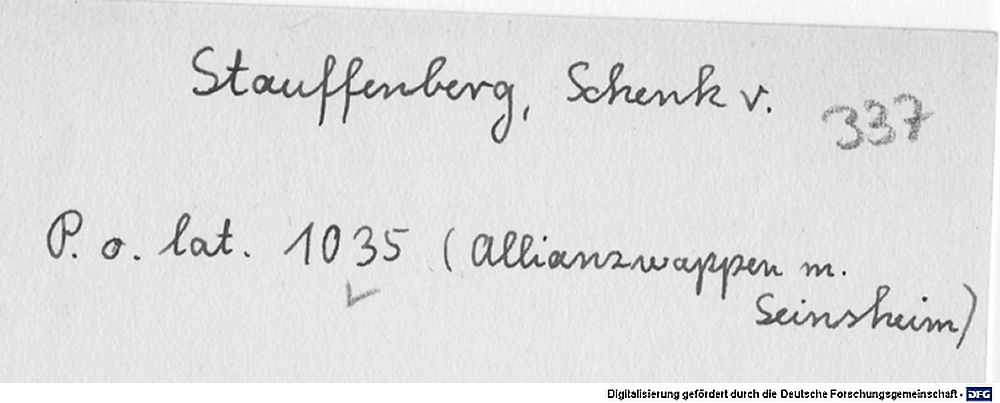 Stauffenberg, Schenk v.
337
P. o. lat. 1035 (Allianzwappen m.
Seinsheim)
Digitalisierung gefördert durch die Deutsche Forschungsgemeinschaft - DFG